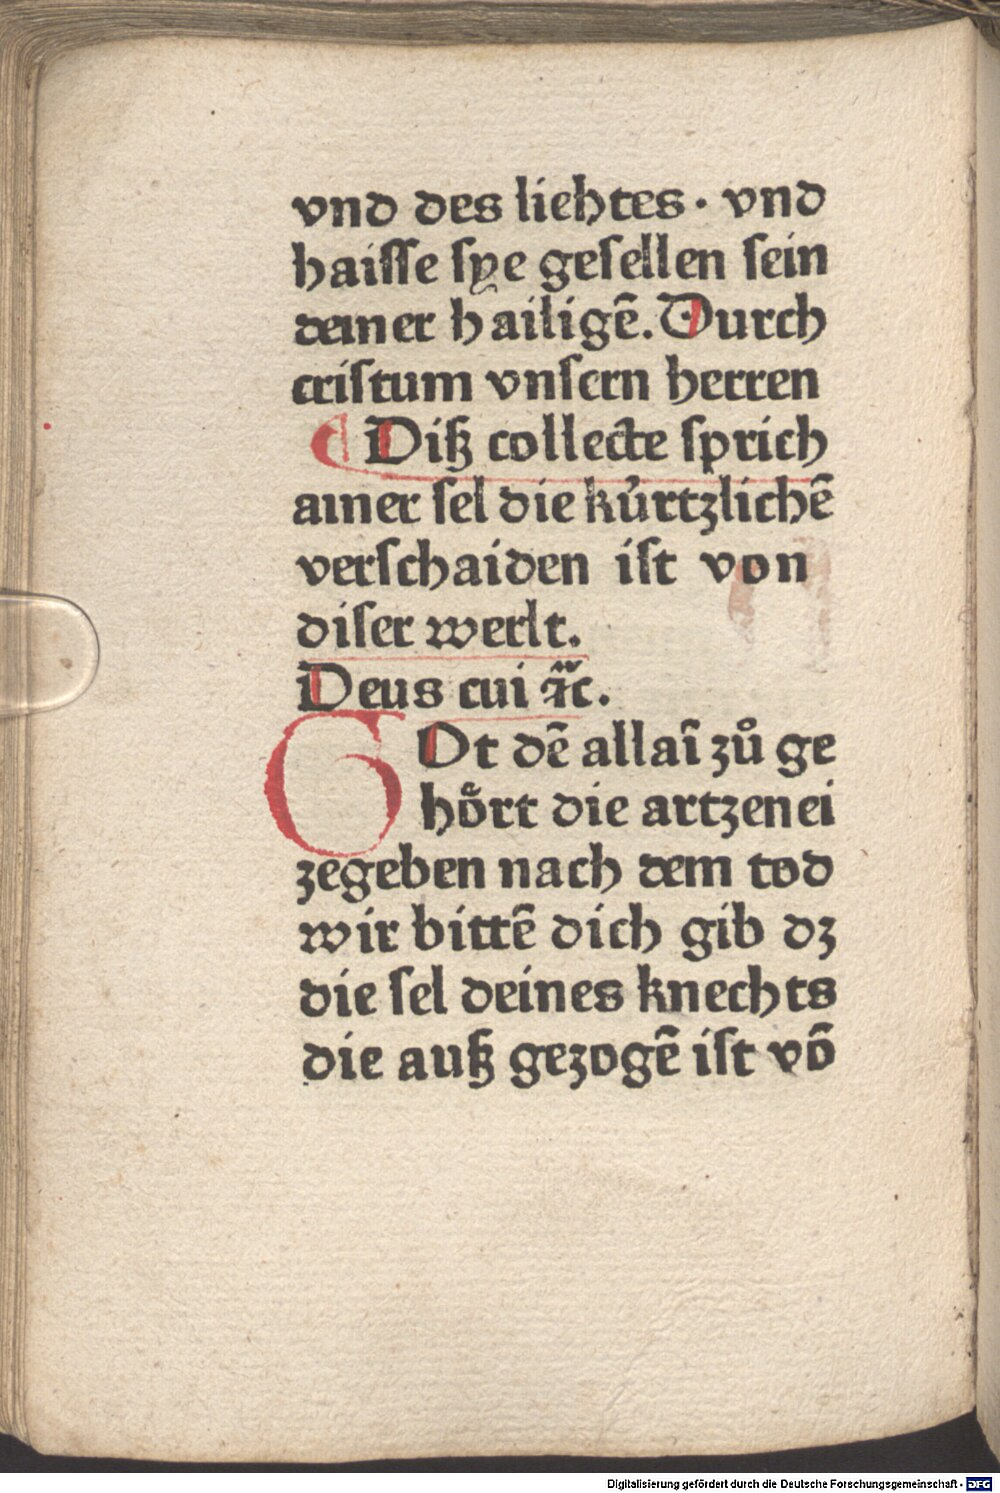 vnd des liehtes · vnd
haiſſe ſye geſellen ſein
deiner hailigē. Durch
criſtum vnſern herren
¶ Diß collecte ſprich
ainer ſel die kůrtzlichē
verſchaiden iſt von
diſer werlt.
Deus cui ꝛ̃c.
GOt dē allaī zů ge
hoͤrt die artzenei
zegeben nach dem tod
wir bittē dich gib dz
die ſel deines knechts
die auß gezogē iſt vō
Digitalisierung gefördert durch die Deutsche Forschungsgemeinschaft - DFG